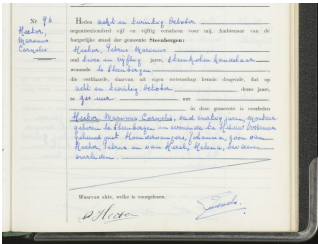 Nr 96
Hector,
Marinus
Cornelis
Heden acht en twintig October
negentienhonderd vijf en vijftig verscheen voor mij, Ambtenaar van de
burgerlijke stand der gemeente Steenbergen:
Hector, Petrus Marinus
oud twee en vijftig jaren, steenkolenhandelaar
wonende te Steenbergen
die verklaarde, daarvan uit eigen wetenschap kennis dragende, dat op
acht en twintig october dezer jaar,
te zes uur uur
in deze gemeente is overleden
Hector Marinus Cornelis, oud veertig jaren,
geboren te Steenbergen en wonende te
gehuwd met Johanna, zoon van
Hector Petrus en van Helena, beiden
overleden.
Waarvan akte, welke is voorgelezen.
P. Hector